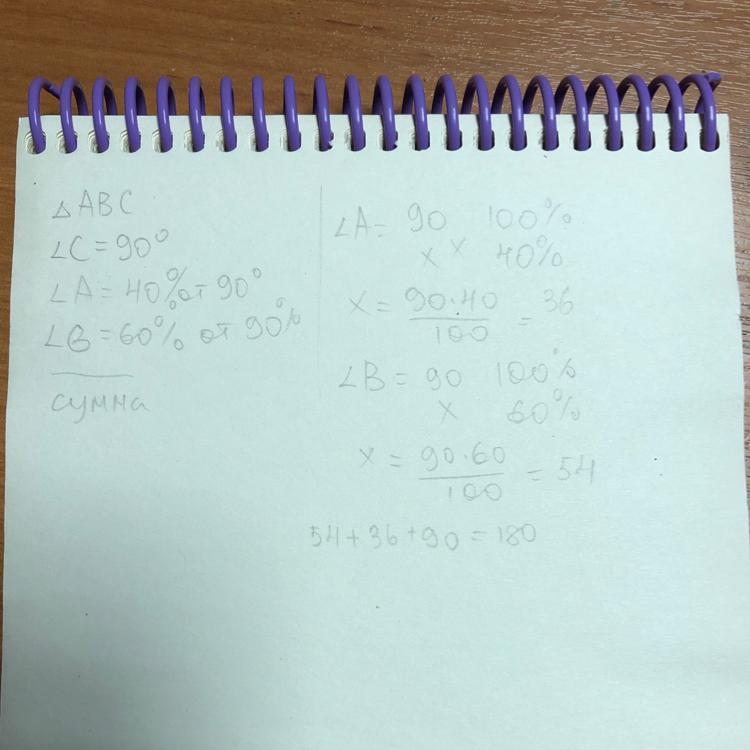 △ABC
∠C=90°
∠A=40% от 90°
∠B=60% от 90%
сумма
∠A= 90 100%
x x 40%
x = 90·40 / 100 = 36
∠B= 90 100%
x 60%
x = 90·60 / 100 = 54
54+36+90=180